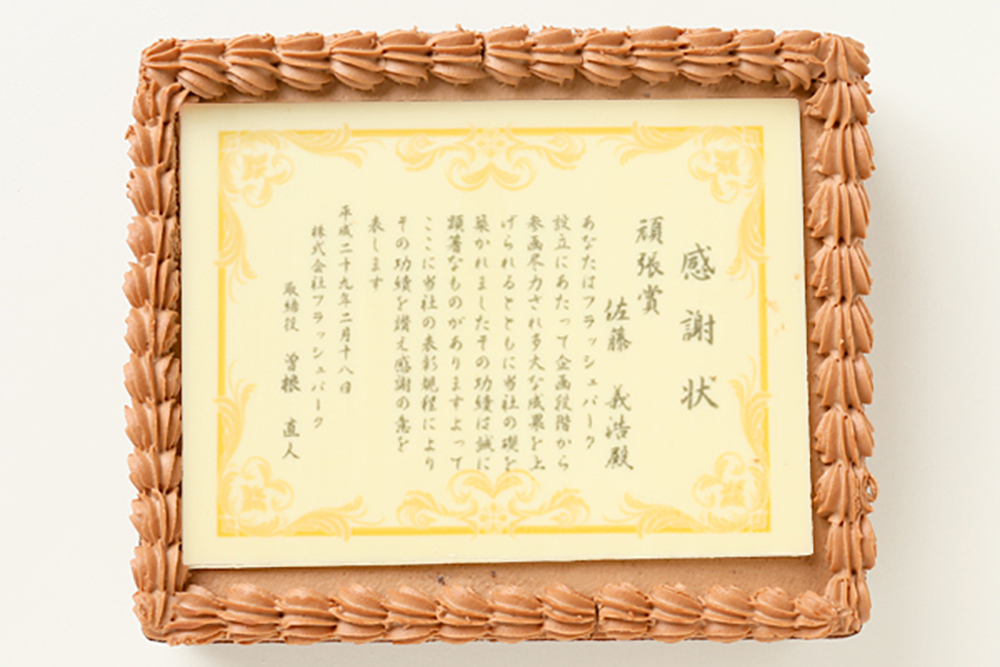 感謝状
頑張賞
佐藤 義浩殿
あなたはフラッシュパーク
設立にあたって企画段階から
参画尽力され多大な成果を上
げられるとともに当社の礎を
築かれましたその功績は誠に
顕著なものがありますよって
ここに当社の表彰規程により
その功績を讃え感謝の意を
表します
平成二十九年二月十八日
株式会社フラッシュパーク
取締役 曽根 直人